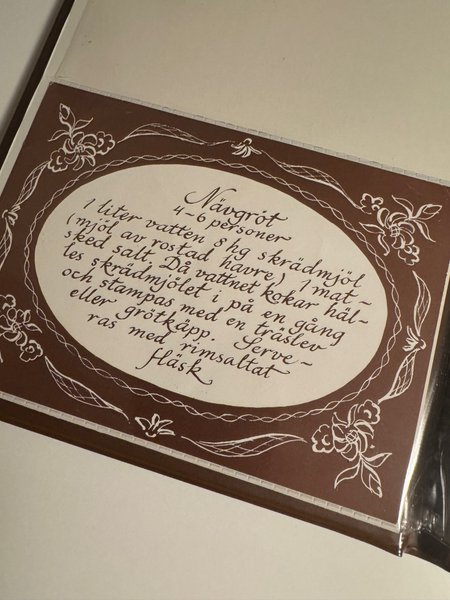 Nävgröt
4-6 personer
1 liter vatten 8 hg skrädmjöl
(mjöl av rostad havre) 1 mat-
sked salt. Då vattnet kokar häl-
les skrädmjölet i på en gång
och stampas med en träslev
eller grötkäpp. Serve-
ras med rimsaltat
fläsk